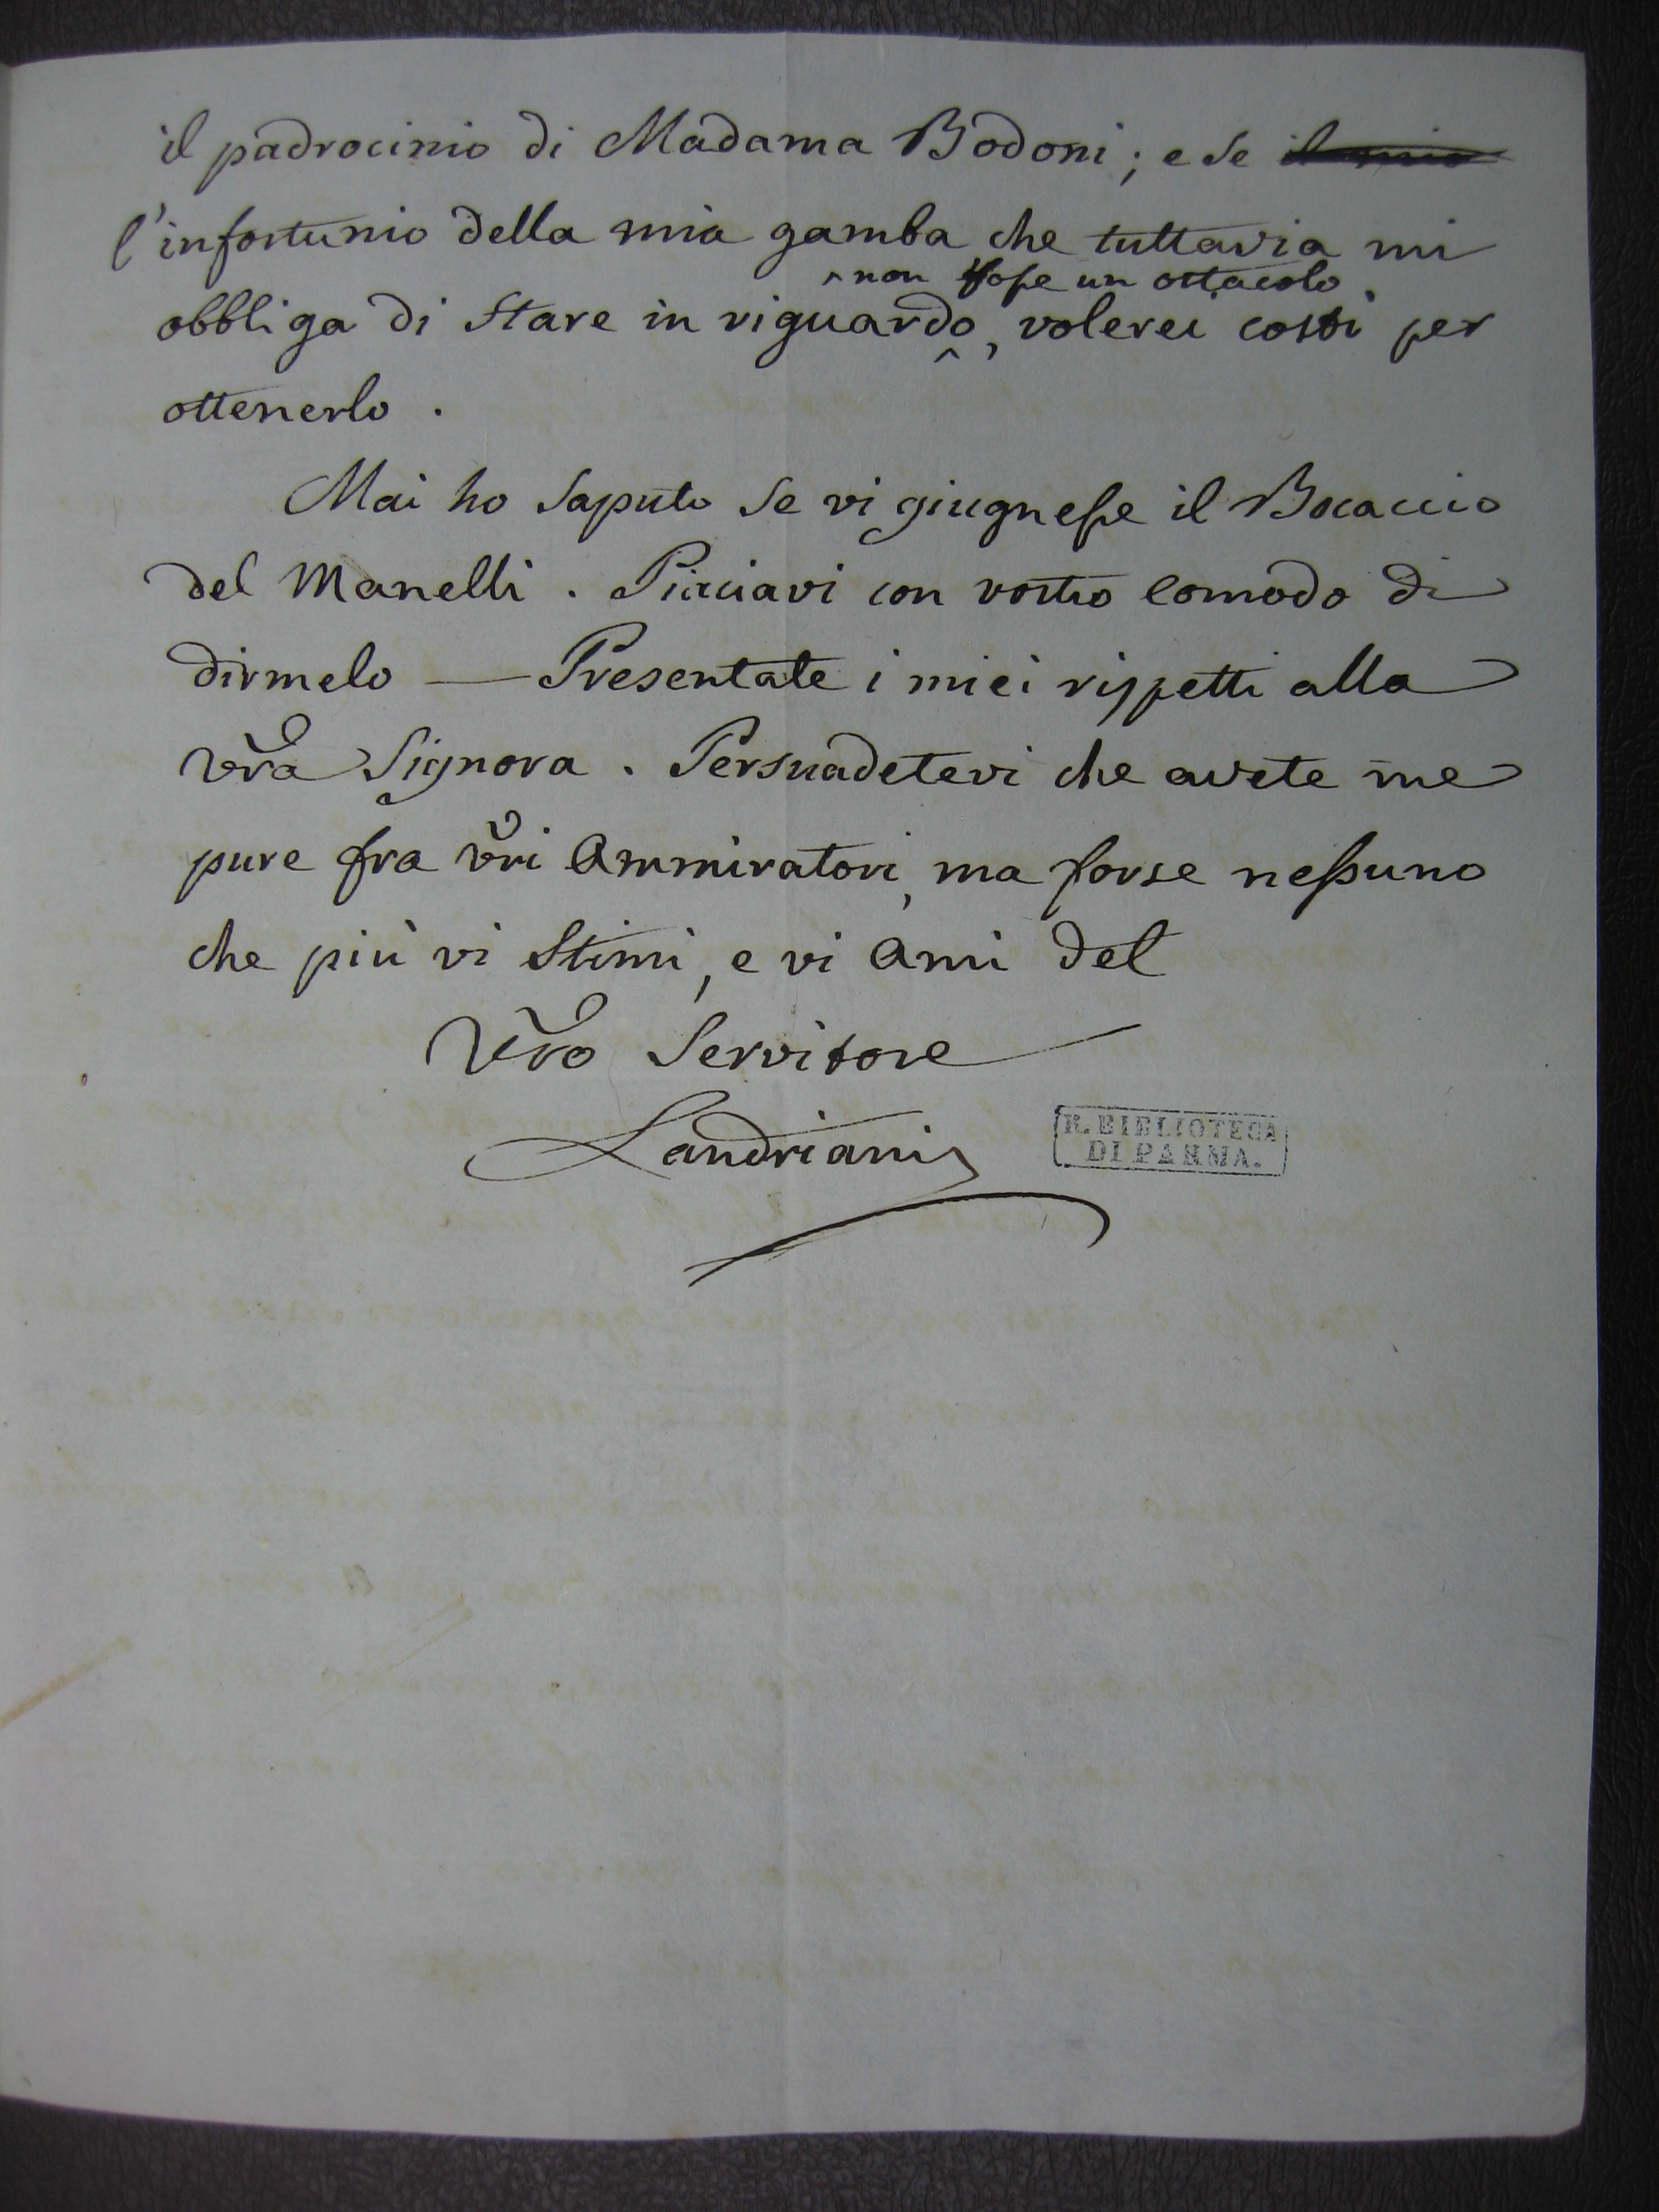 il padrocinio di Madama Bodoni; e se il mio
l'infortunio della mia gamba che tuttavia mi
^ non fosse un ostacolo
obbliga di stare in riguardo, volerei costì per
ottenerlo.
Mai ho saputo se vi giugnesse il Bocaccio
del Manelli. Piacciavi con vostro comodo di
dirmelo — Presentate i miei rispetti alla
vr̃a Signora. Persuadetevi che avete me
pure fra vr̃i Ammiratori, ma forse nessuno
che più vi stimi, e vi ami del
Vr̃o Servitore
Landriani
R. BIBLIOTECA
DI PARMA.